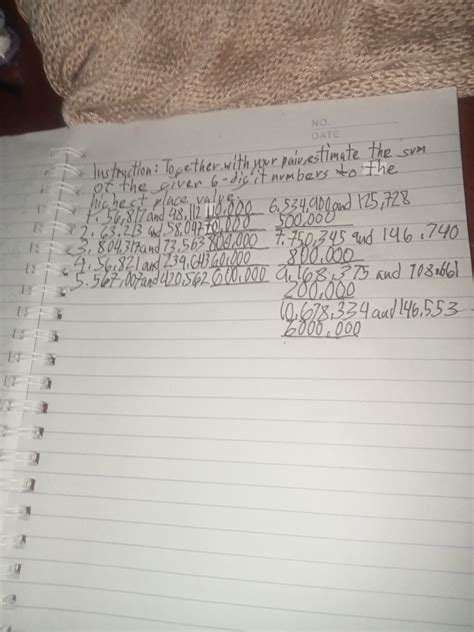 NO.
DATE
Instruction: Together with your pair, estimate the sum
of the given 6-digit numbers to the
highest place value.
1. 56,817 and 48,112 110,000
2. 63,213 and 58,047 70,000
3. 804,317 and 73,563 800,000
4. 56,821 and 239,643 60,000
5. 567,007 and 420,562 600,000
6. 534,900 and 125,728
500,000
7. 750,345 and 146,740
800,000
9. 168,375 and 108,661
200,000
10. 678,334 and 146,553
6000,000